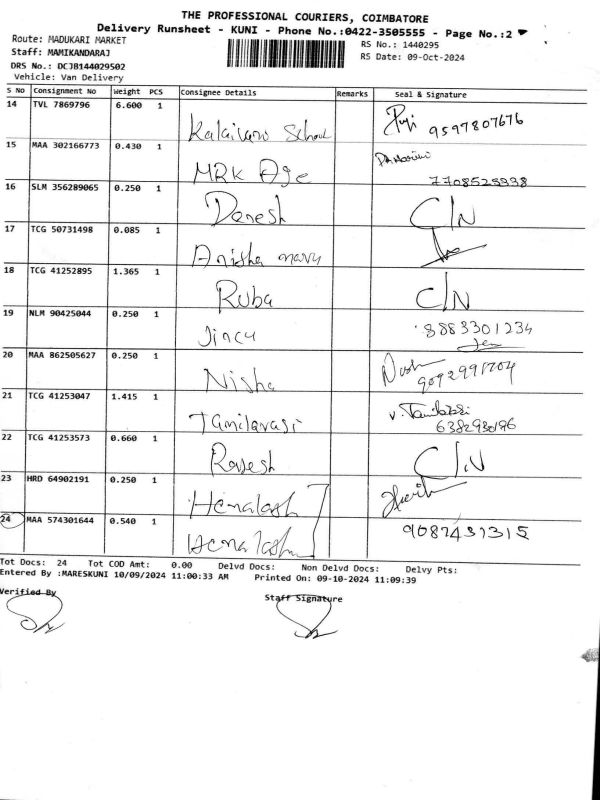 THE PROFESSIONAL COURIERS, COIMBATORE
Delivery Runsheet - KUNI - Phone No.:0422-3505555 - Page No.:2
Route: MADUKARI MARKET
RS No.: 1440295
Staff: MAMIKANDARAJ
RS Date: 09-Oct-2024
DRS No.: DCJB144029502
Vehicle: Van Delivery
S No Consignment No Weight PCS Consignee Details Remarks Seal & Signature
14 TVL 7869796 6.600 1 Kalaivani School 9597807676
15 MAA 302166773 0.430 1 MRK Age 7708528938
16 SLM 356289065 0.250 1 Danesh C/N
17 TCG 50731498 0.085 1 Anisha mary
18 TCG 41252895 1.365 1 Ruba C/N
19 NLM 90425044 0.250 1 Jincy 8883301234
20 MAA 862505627 0.250 1 Nisha
21 TCG 41253047 1.415 1 Tamilarasi V. Tamilarasi
22 TCG 41253573 0.660 1 Rajesh C/N
23 HRD 64902191 0.250 1 Hemalash
24 MAA 574301644 0.540 1 Hemalash 9087431315
Tot Docs: 24 Tot COD Amt: 0.00 Delvd Docs: Non Delvd Docs: Delvy Pts:
Entered By :MARESKUNI 10/09/2024 11:00:33 AM Printed On: 09-10-2024 11:09:39
Verified By Staff Signature